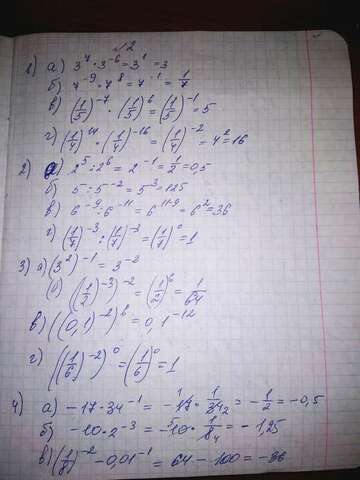 √2
1) а) 3^7 · 3^-6 = 3^1 = 3
б) 7^-9 · 7^8 = 7^-1 = 1/7
в) (1/5)^-7 · (1/5)^6 = (1/5)^-1 = 5
г) (1/4)^14 · (1/4)^-16 = (1/4)^-2 = 4^2 = 16
2) а) 2^5 : 2^6 = 2^-1 = 1/2 = 0,5
б) 5 : 5^-2 = 5^3 = 125
в) 6^-9 : 6^-11 = 6^11-9 = 6^2 = 36
г) (1/7)^-3 : (1/7)^-3 = (1/7)^0 = 1
3) а) (3^2)^-1 = 3^-2
б) ((1/2)^-3)^-2 = (1/2)^6 = 1/64
в) ((0,1)^-2)^6 = 0,1^-12
г) ((1/6)^-2)^0 = (1/6)^0 = 1
4) а) -17 · 34^-1 = -17 · 1/34 = -1/2 = -0,5
б) -10 · 2^-3 = -10 · 1/8 = -1,25
в) (1/8)^-2 - 0,01^-1 = 64 - 100 = -36